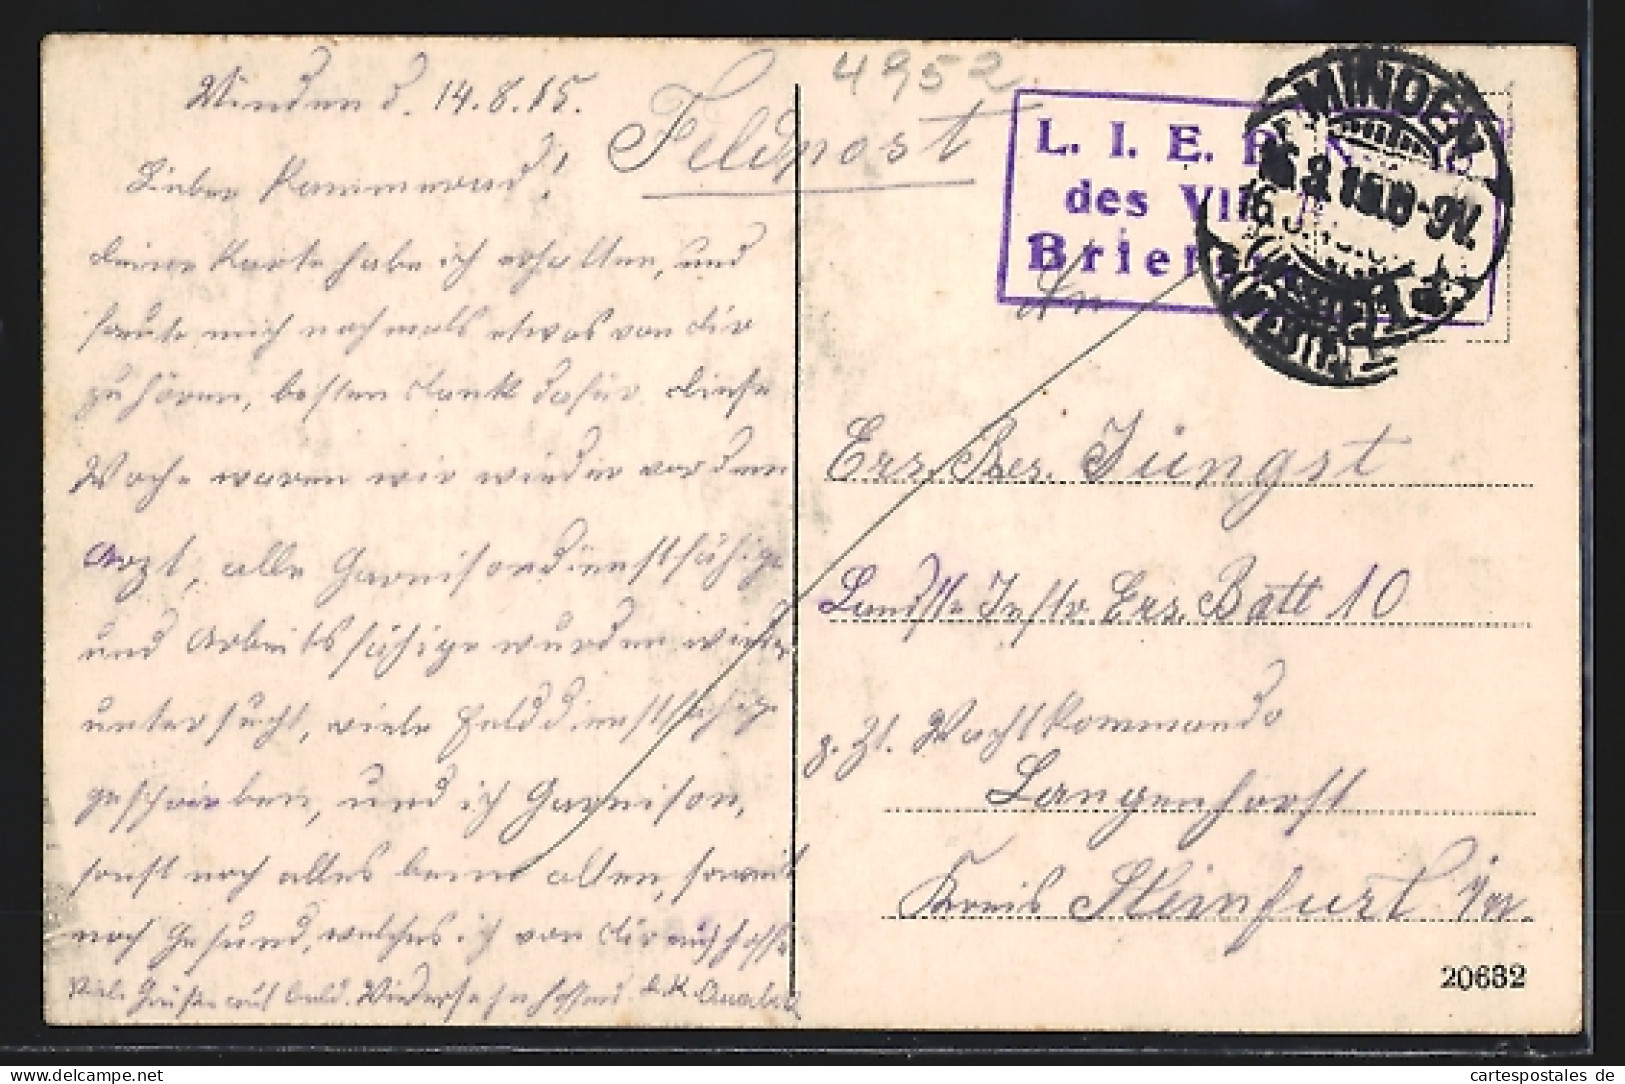 Minden d. 14.8.15.
Feldpost
4952
Lieber Kammerad!
deine Karte habe ich erhalten, und
freute mich nochmals etwas von dir
zu hören, besten Dank dafür. Diese
Woche waren wir wieder vor dem
Arzt, alle Garnisondienstfähige
und Arbeitsfähige wurden wieder
untersucht, viele Felddienstfähig
geschrieben, und ich Garnison,
sonst noch alles beim alten, soweit
noch Gesund, welches ich von dir auch hoffe
Viele Grüße auf bald. Wiedersehn hoffend. d. K.
L. I. E. B.
des VII
Brief
MINDEN
An
Ers. Res. Jüngst
Landst. Inftr. Ers. Batt 10
z. Zt. Wachtkommando
Langenhorst
Kreis Steinfurt i/w.
20632
cartespostales de